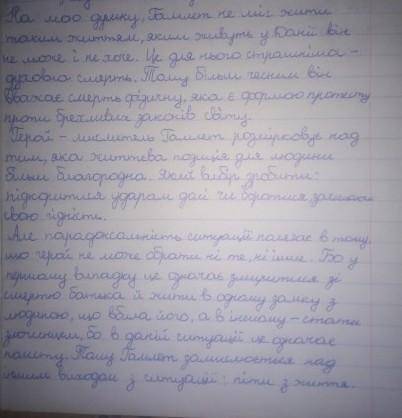 На мою думку, Гамлет не міг жити
таким життям, яким живуть у Данії він
не може і не хоче. Це для нього страшніша -
духовна смерть. Тому більш чесним він
вважає смерть фізичну, яка є формою протесту
проти брехливих законів світу.
Герой - мислитель Гамлет розмірковує над
тим, яка життєва позиція для людини
більш благородна. Який вибір зробити:
підкоритися ударам долі чи боротися
свою гідність.
Але парадоксальність ситуації полягає в тому,
що герой не може обрати ні те, ні інше. Бо у
першому випадку це означає змиритися зі
смертю батька й жити в одному замку з
людиною, що вбила його, а в іншому - стати
злочинцем, бо в даній ситуації це означає
помсту. Тому Гамлет замислюється над
іншим виходом з ситуації: піти з життя.